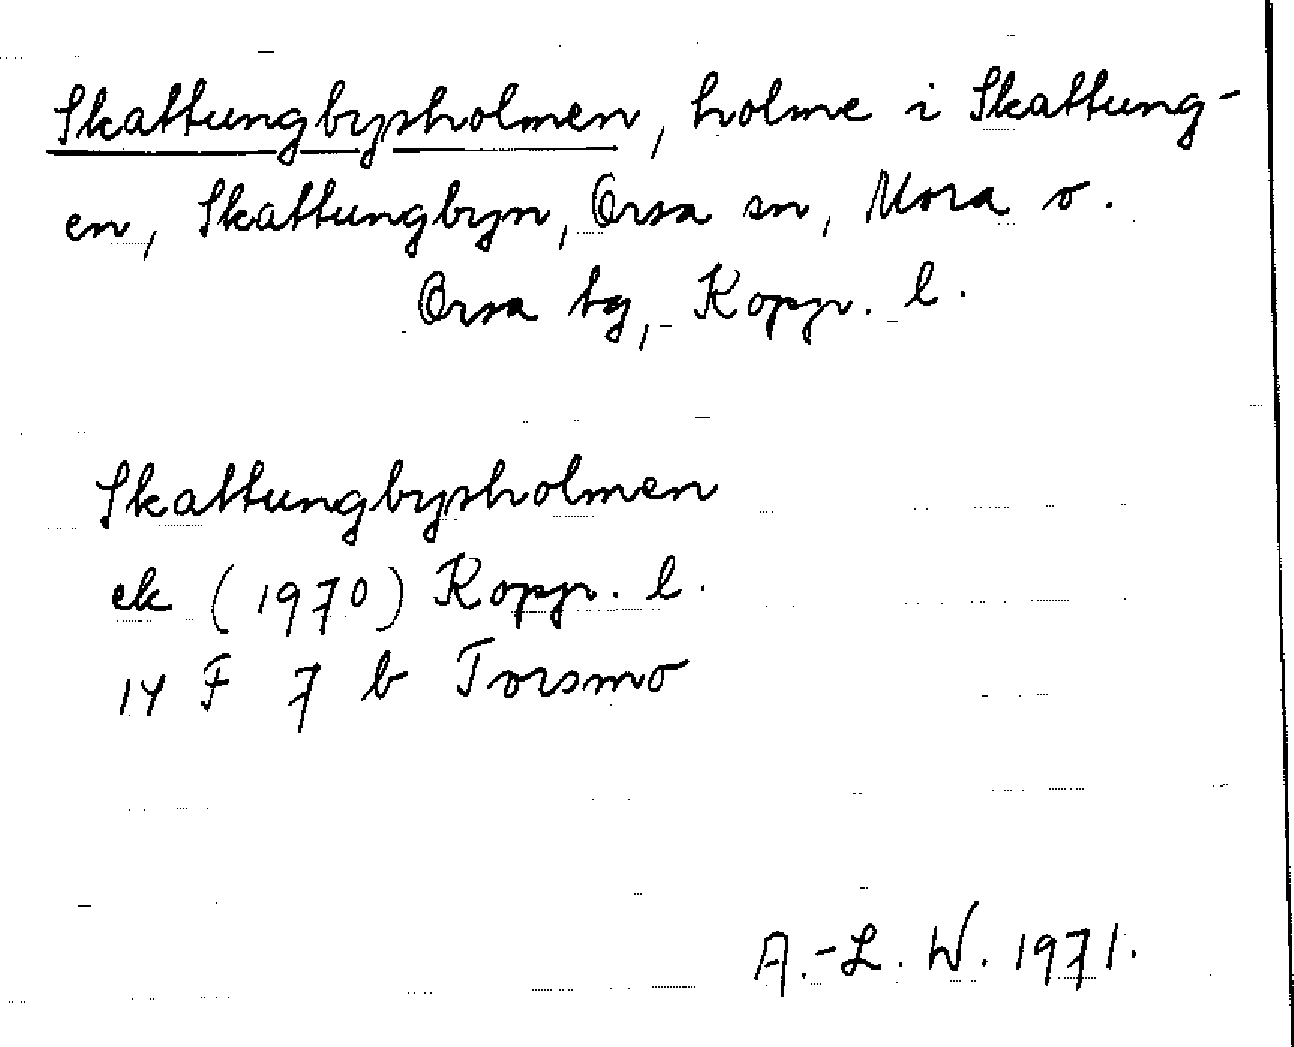 Skattungbysholmen, holme i Skattung-
en, Skattungbyn, Orsa sn, Mora o.
Orsa tg, Kopp. l.
Skattungbysholmen
ek (1970) Kopp. l.
14 F 7 b Torsmo
A.-L. W. 1971.